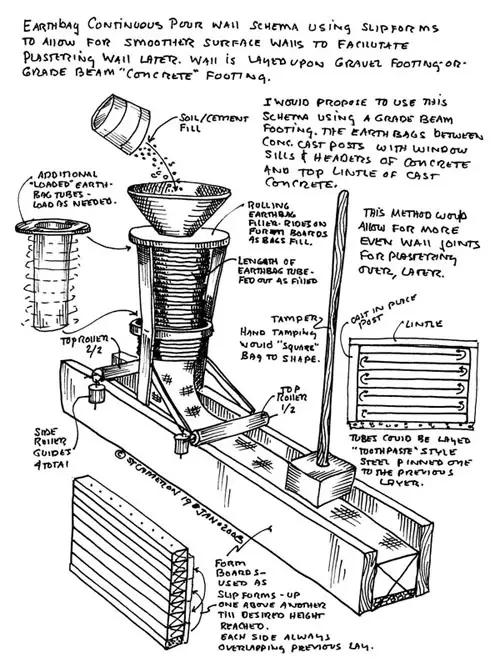 EARTHBAG CONTINUOUS POUR WALL SCHEMA USING SLIPFORMS
TO ALLOW FOR SMOOTHER SURFACE WALLS TO FACILITATE
PLASTERING WALL LATER. WALL IS LAYED UPON GRAVEL FOOTING-OR-
GRADE BEAM "CONCRETE" FOOTING.
SOIL/CEMENT
FILL
I WOULD PROPOSE TO USE THIS
SCHEMA USING A GRADE BEAM
FOOTING. THE EARTHBAGS BETWEEN
CONC. CAST POSTS WITH WINDOW
SILLS & HEADERS OF CONCRETE
AND TOP LINTLE OF CAST
CONCRETE.
ADDITIONAL
"LOADED" EARTH-
BAG TUBES-
LOAD AS NEEDED.
ROLLING
EARTHBAG
FILLER-RIDES ON
FORM BOARDS
AS BAGS FILL.
LENGTH OF
EARTHBAG TUBE-
FED OUT AS FILLED
THIS METHOD WOULD
ALLOW FOR MORE
EVEN WALL JOINTS
FOR PLASTERING
OVER, LATER.
TAMPER
HAND TAMPING
WOULD "SQUARE"
BAG TO SHAPE.
CAST IN PLACE
POST
LINTLE
TOP ROLLER
2/2
TOP
ROLLER
1/2
SIDE
ROLLER
GUIDES
4 TOTAL
TUBES COULD BE LAYED
"TOOTHPASTE" STYLE
STEEL PINNED ONE
TO THE PREVIOUS
LAYER.
© ST CAMERON 19 JAN 2008
FORM
BOARDS-
USED AS
SLIPFORMS-UP
ONE ABOVE ANOTHER
TILL DESIRED HEIGHT
REACHED.
EACH SIDE ALWAYS
OVERLAPPING PREVIOUS LAY.